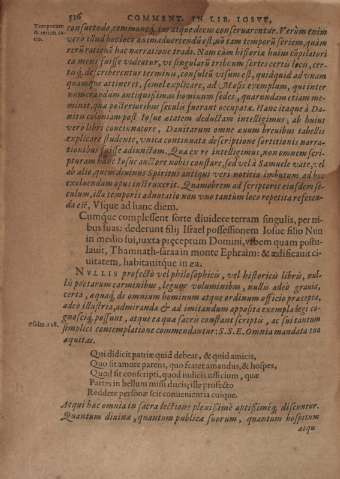 516 COMMENT. IN LIB. IOSVE,
consuetudo, communsq; iur atque decem conseruarentur. Verùm enim
vero illud hoc loco animaduertendum est, nō tam temporū seriem, quàm
rerū rationē hac narratione tradi. Nam cùm historiæ huius cōpilatori
ea mens fuisse videatur, vt singularū tribuum sortes certis locis, cer-
quamque attineret, simul explicare, ad Mosis exemplum, qui inter
numerandum antiquissimas hominum sedes, quarundam etiam me-
minit, quæ posterioribus seculis fuerant occupatæ. Hanc itaque à Da-
nitis coloniam post Iosue ætatem deductam intelligimus, ab huius
vero libri concinnatore, Danitarum omne æuum breuibus tabellis
explicare studente, vnica continuata descriptione sortitionis narra-
tionibus fuisse adiunctam. Qua ex re intelligimus, non omnem scri-
pturam hanc Iosue auctore nobis constare, sed vel à Samuele vate, vel
ab alio, quem diuinus Spiritus antiqui veri notitia imbutum ad hoc
exoluendum opus instruxerit. Quamobrem ad scriptoris eiusdem se-
culum, illa temporis adnotatio non vno tantùm loco repetita referen-
da est, Vsque ad hanc diem.
Cùmque complessent sorte diuidere terram singulis, per tri-
bus suas: dederunt filij Israel possessionem Iosue filio Nun
in medio sui, iuxta præceptum Domini, vrbem quam postu-
lauit, Thamnath-saraa in monte Ephraim: & ædificauit ci-
uitatem, habitauitque in ea.
NVLLIS profectò vel philosophicis, vel historicis libris, nul-
lis poëtarum carminibus, legum voluminibus, nullis adeò grauia,
certa, æquaq; de omnium hominum atque ordinum officio præcepta,
adeò illustria, admiranda & ad imitandum apposita exempla legi co-
gnosciq; possunt, atque ea quæ sacris constant scriptis, ac sui tantùm
simplici contemplatione commendantur: S.S.E. Omnia mandata tua
æquitas.
Qui didicit patriæ quid debeat, & quid amicis,
Quo sit amore parens, quo frater amandus, & hospes,
Quod sit conscripti, quod iudicis officium, quæ
Partes in bellum missi ducis; ille profectò
Reddere personæ scit conuenientia cuique.
Atqui hæc omnia in sacra lectione plenissimè aptissimèq; discuntur.
Quantum diuina, quantum publica suorum, quantum hospitum
atqu